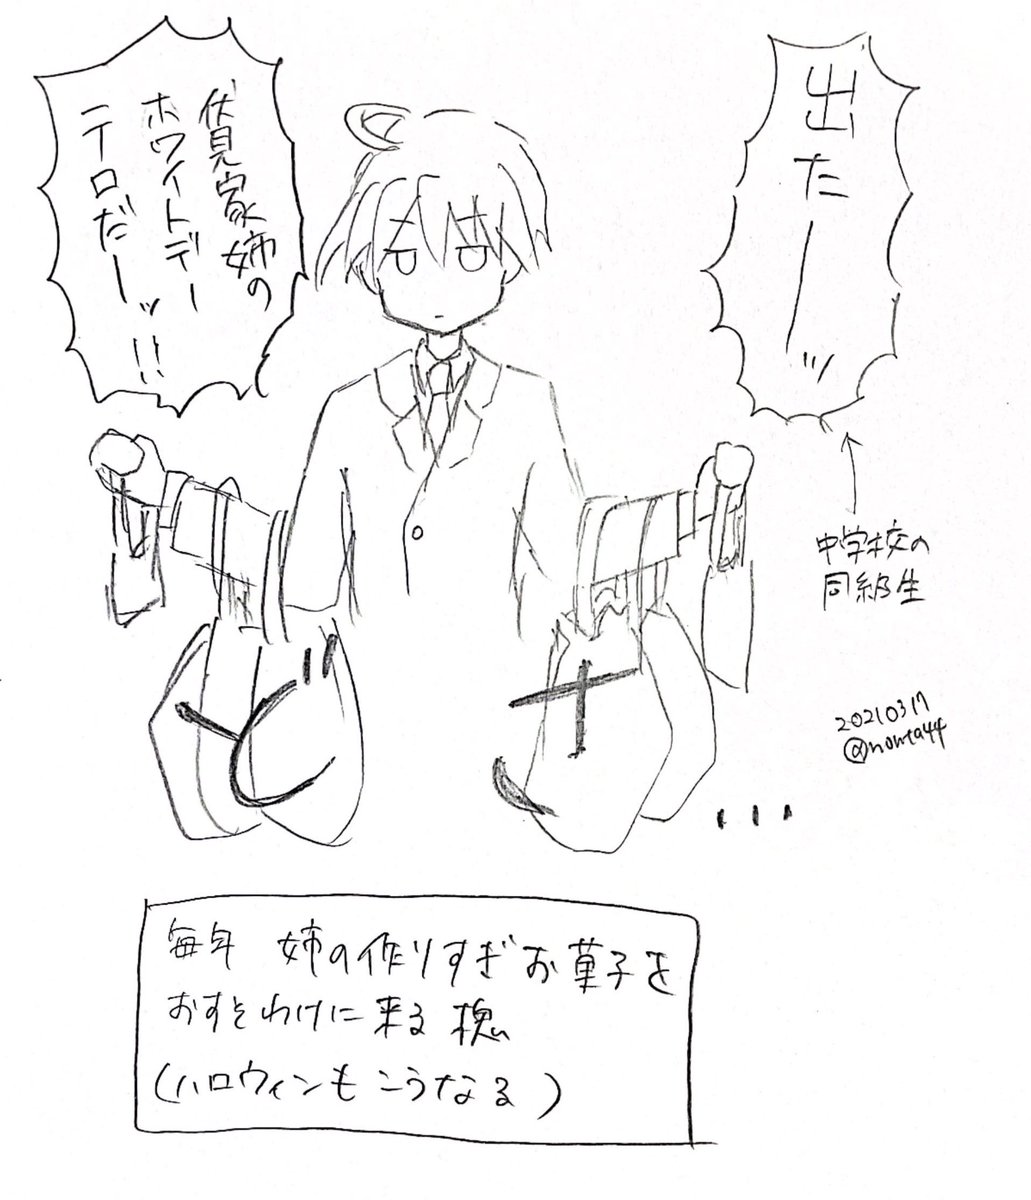 出たーッ
伏見家姉の
ホワイトデー
テロだーッ!!
中学校の
同級生
どっさ
20210317
@nonta44
毎年 姉の作りすぎお菓子を
おすそわけに来る槐
(ハロウィンもこうなる)